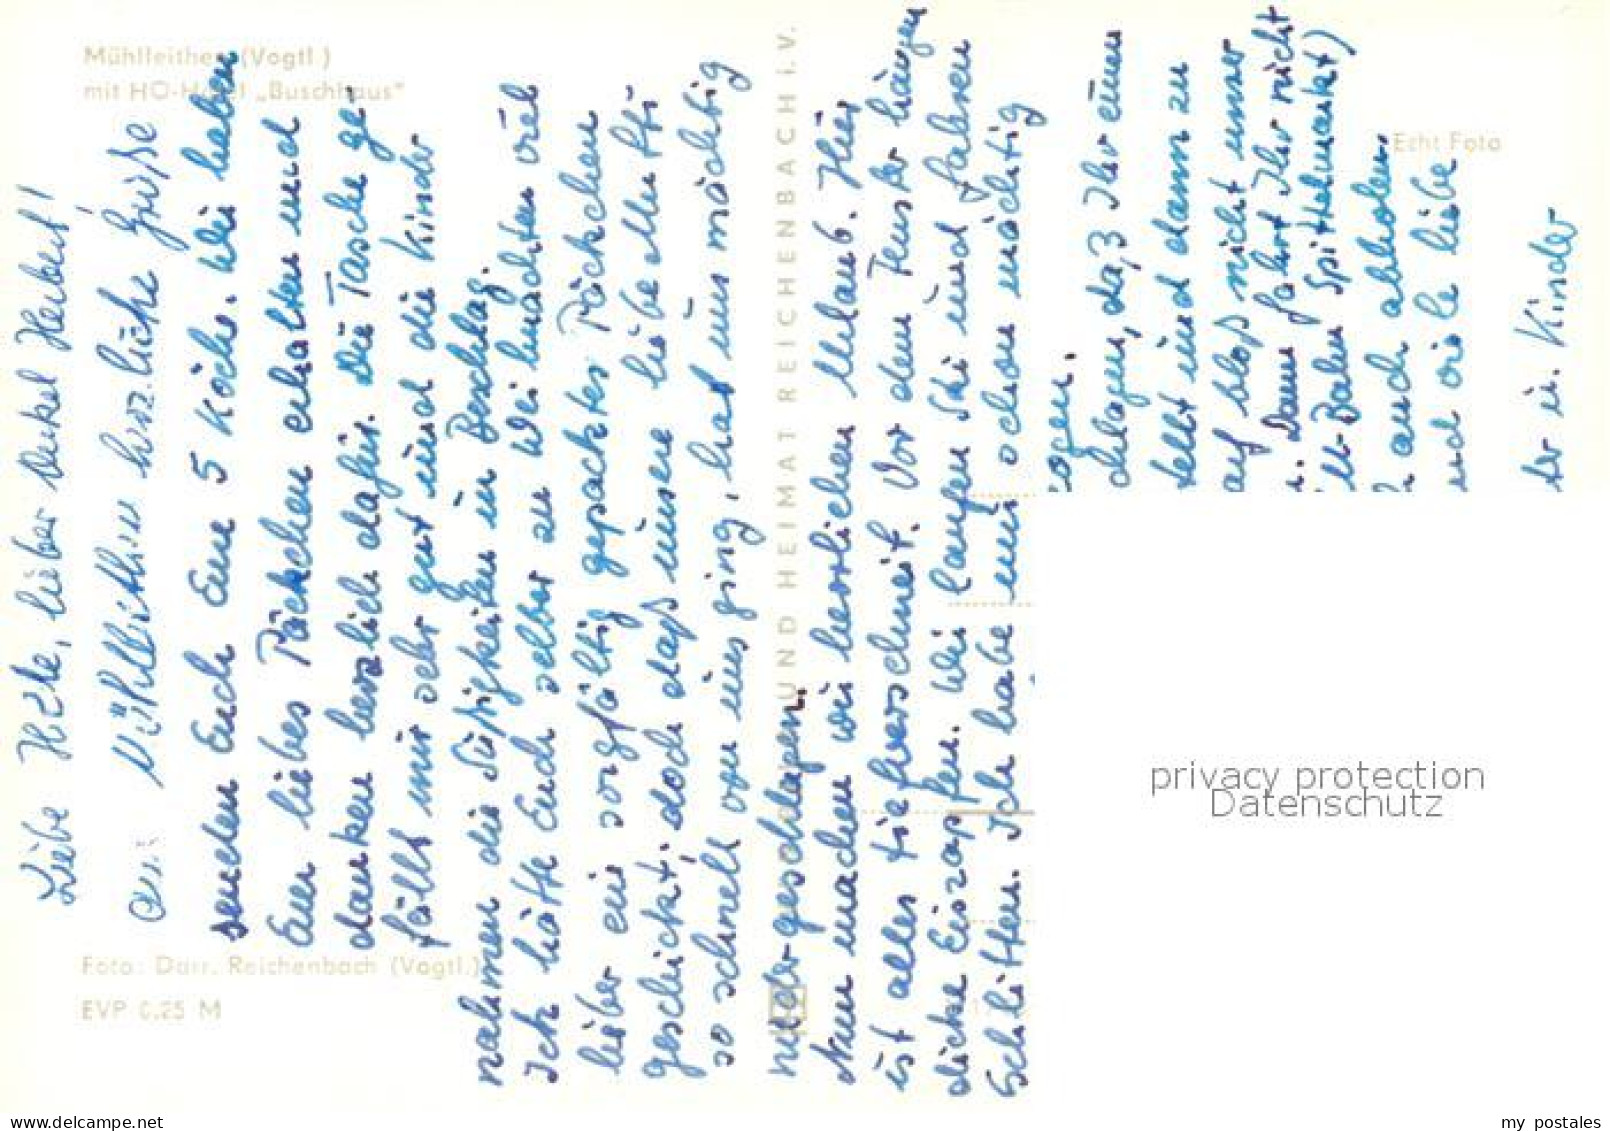 Mühlleithen (Vogtl.)
mit HO-Hotel „Buschhaus"
Echt Foto
Foto: Darr, Reichenbach (Vogtl.)
EVP 0,25 M
UND HEIMAT REICHENBACH i. V.
Liebe Käte, lieber Onkel Herbert!
Aus Mühlleithen herzliche Grüße
senden Euch Eure 5 Köche. Wir haben
Euer liebes Päckchen erhalten und
danken herzlich dafür. Die Tasche ge-
fällt mir sehr gut und die Kinder
nahmen die Süßigkeiten in Beschlag.
Ich hätte Euch selber zu Weihnachten viel
lieber ein sorgfältig gepacktes Päckchen
geschickt, doch daß unsere liebe Mutti
so schnell von uns ging, hat uns mächtig
niedergeschlagen.
Nun machen wir herrlichen Urlaub. Hier
ist alles tief verschneit. Vor dem Fenster hängen
dicke Eiszapfen. Wir laufen Ski und fahren
Schlitten. Ich habe mich schon mächtig
ogen.
chlagen, daß Ihr einen
tellt und dann zu
auf bloß nicht unser
n. Dann fahrt Ihr nicht
U-Bahn Spittelmarkt)
auch abholen.
und viele liebe
ter u. Kinder
privacy protection
Datenschutz
delcampe.net
my_postales